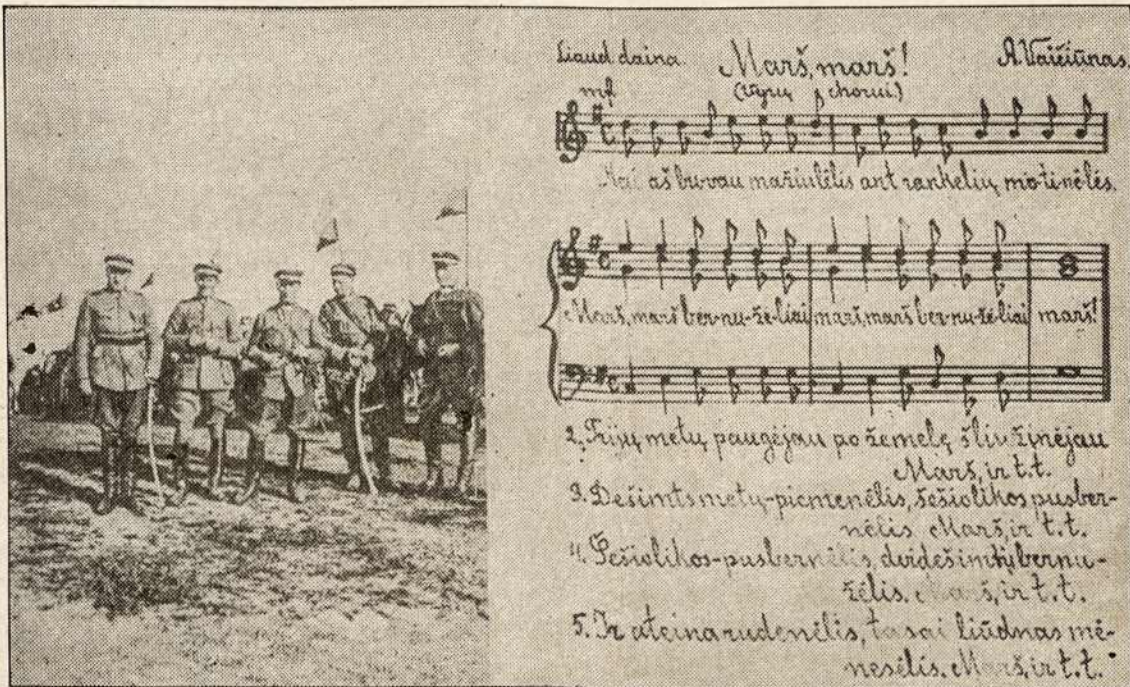 Liaud daina. Marš, marš! A. Vaičiūnas.
mf (vyrų chorui.)
Kai aš buvau mažiulėlis ant rankelių mo-ti-nė-lės.
Marš, marš ber-nu-že-liai marš, marš ber-nu-že-liai marš!
2. Trijų metų paugėjau po žemelę šliužinėjau
Marš, ir t.t.
3. Dešimts metų-piemenėlis, šešiolikos pusber-
nėlis. Marš, ir t.t.
4. Šešiolikos-pusbernėlis, dvidešimtį bernu-
žėlis. Marš, ir t.t.
5. Ir ateina rudenėlis, tasai liūdnas mė-
nesėlis. Marš, ir t.t.